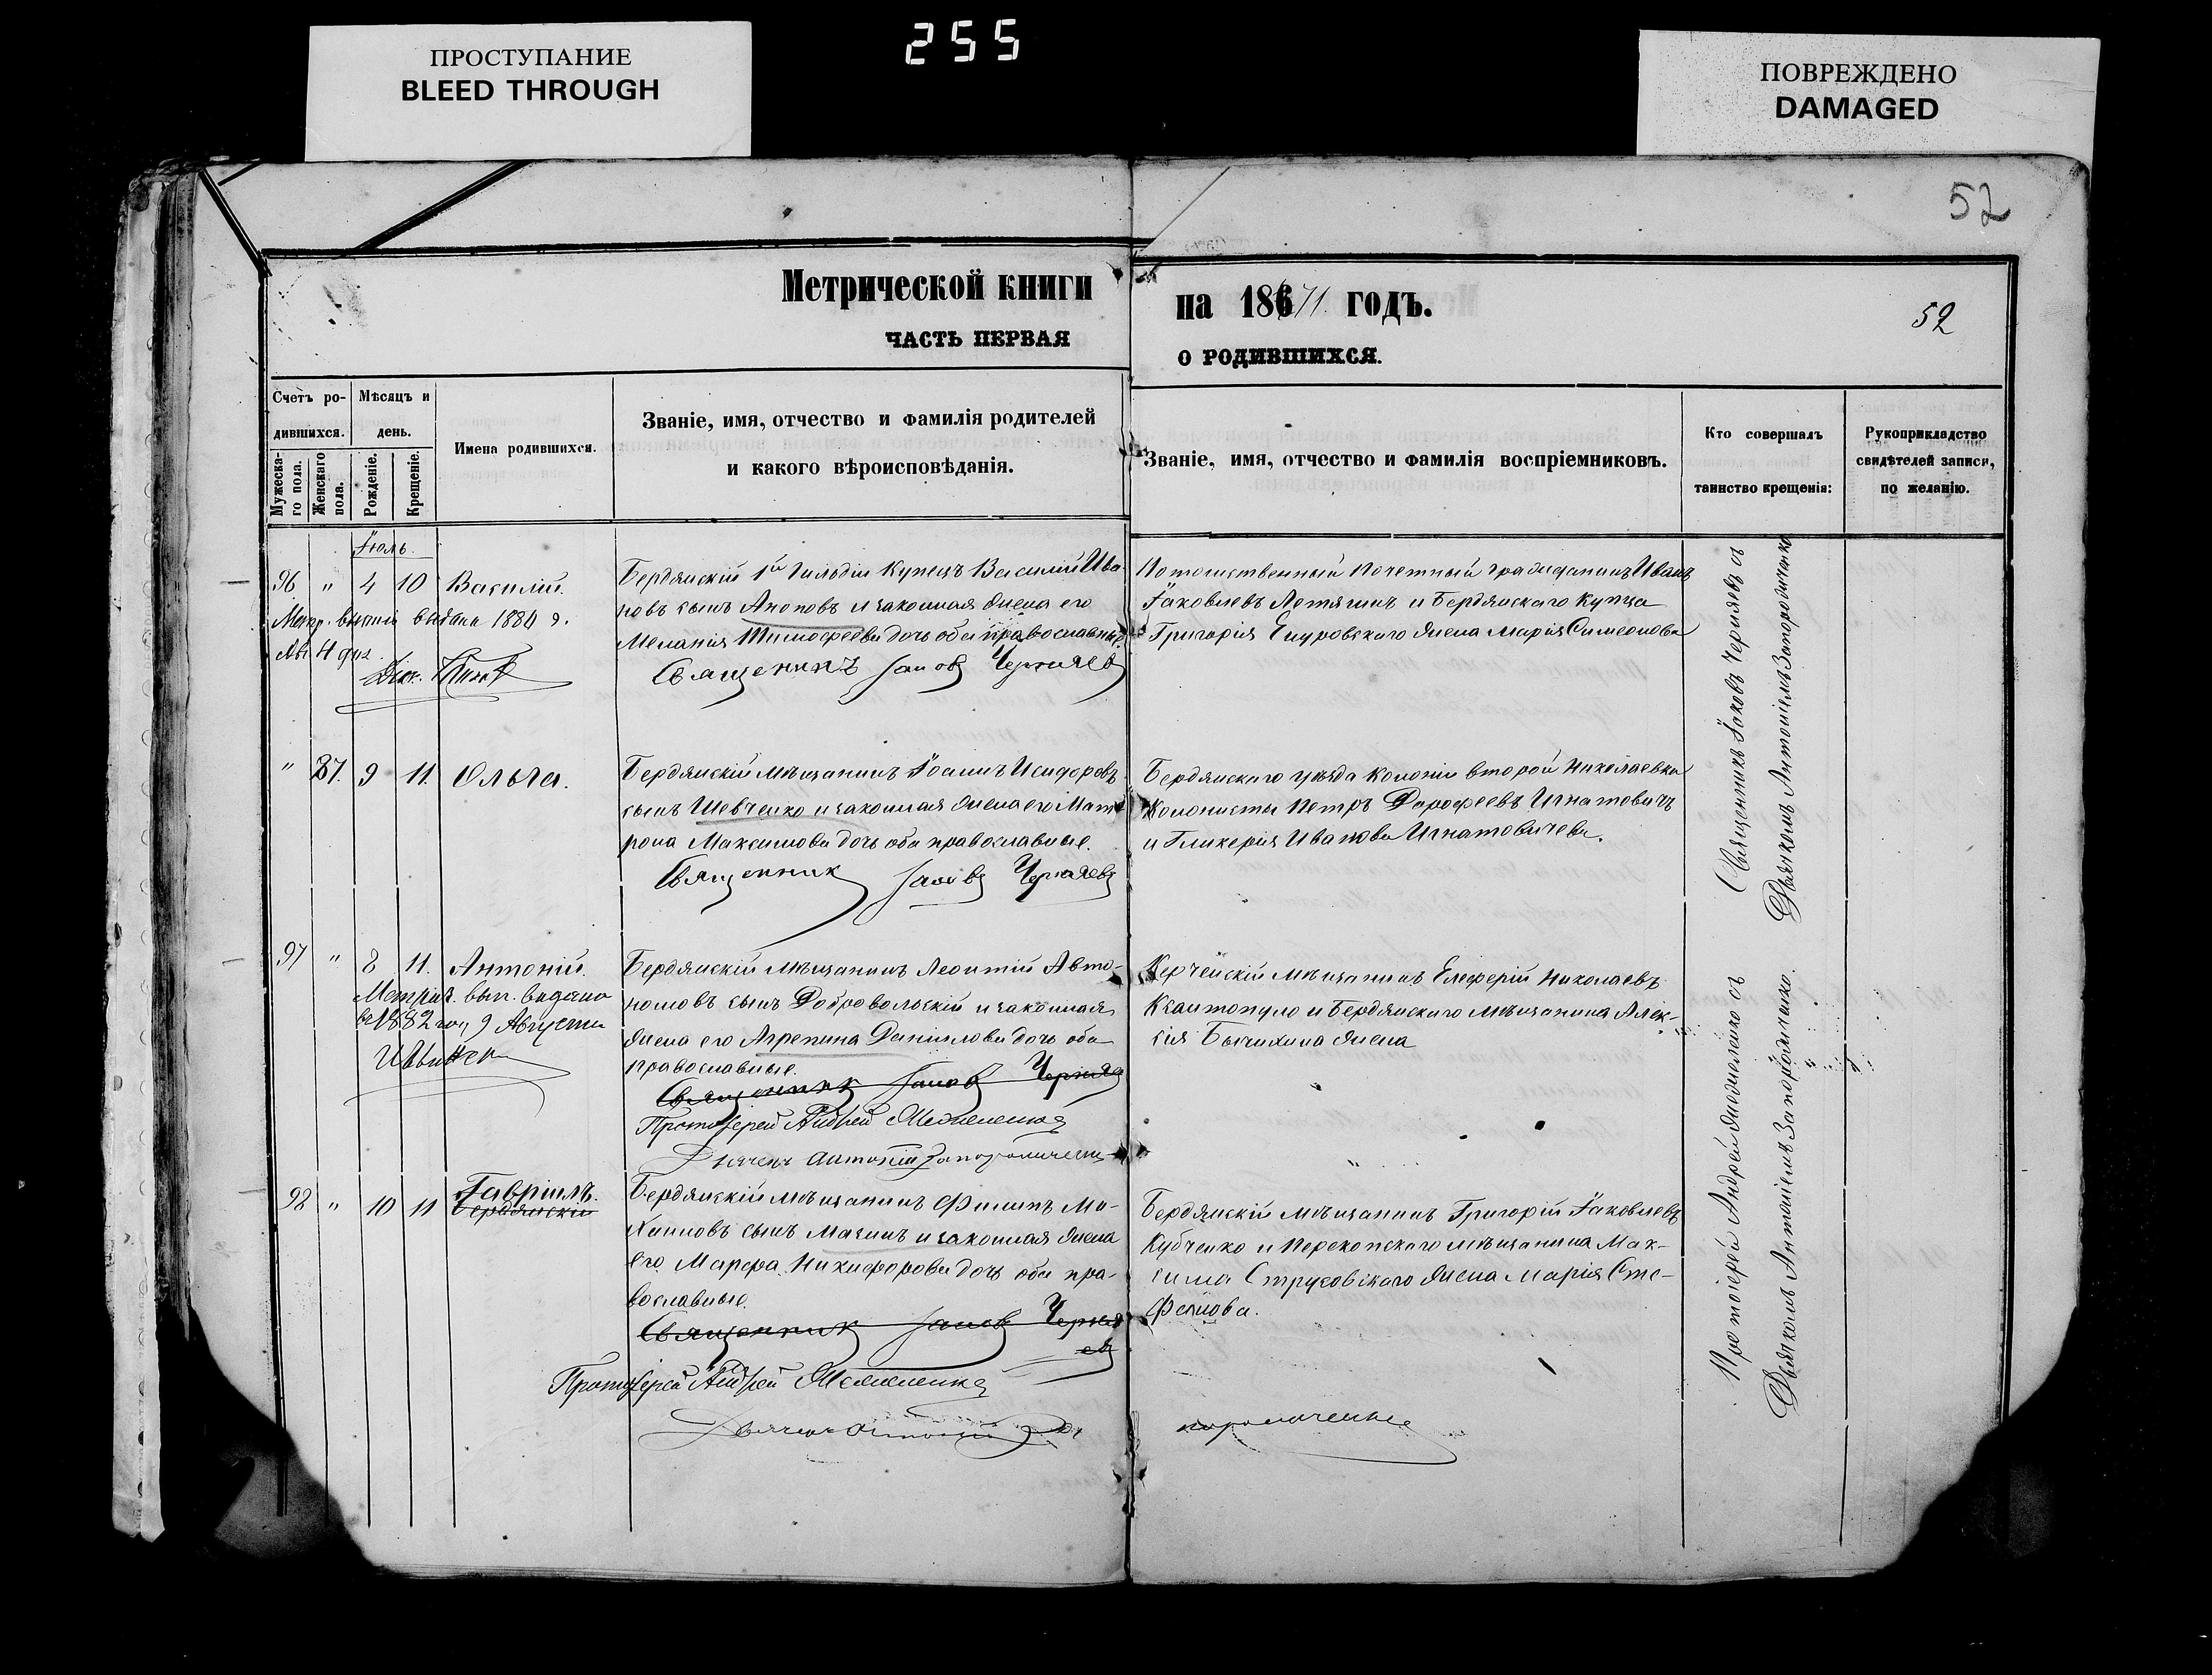 ПРОСТУПАНИЕ
BLEED THROUGH
255
ПОВРЕЖДЕНО
DAMAGED
52
Метрической книги
на 1871 годъ.
52
ЧАСТЬ ПЕРВАЯ
О РОДИВШИХСЯ.
Счетъ ро-
дившихся.
Мѣсяцъ и
день.
Имена родившихся.
Званіе, имя, отчество и фамилія родителей
и какого вѣроисповѣданія.
Званіе, имя, отчество и фамилія воспріемниковъ.
Кто совершалъ
таинство крещенія:
Рукоприкладство
свидѣтелей записи,
по желанію.
Мужеска-
го пола.
Женскаго
пола.
Рожденіе.
Крещеніе.
Іюль.
96 " 4 10 Василій.
Бердянскій 1й Гильдіи Купецъ Василій Ива-
новъ сынъ Аноповъ и законная жена его
Меланія Тимофеева дочь оба православные.
Священникъ Іаковъ Черняевъ
Потомственный Почетный гражданинъ Иванъ
Іаковлевъ Летягинъ и Бердянскаго Купца
Григорія жена Марія Симеонова
выдана 1880 г.
" 87. 9 11. Ольга.
Бердянскій мѣщанинъ Іоаннъ Исидоровъ
сынъ Шевченко и законная жена его Мат-
рона Максимова дочь оба православные.
Священникъ Іаковъ Черняевъ
Бердянскаго уѣзда Колоніи второй Николаевки
Колонисты Петръ Дорофеевъ Игнатовичъ
и Гликерія Иванова Игнатовичева.
Священникъ Іаковъ Черняевъ съ
Дьячкомъ Антоніемъ Запорожченко
97 " 8 11. Антоній.
Метрич. вып. видана
въ 1882 году 9 Августа
Бердянскій мѣщанинъ Леонтій Авто-
номовъ сынъ Добровольскій и законная
жена его Агрепина Даніилова дочь оба
православные.
Священникъ Іаковъ Черняев
Протоіерей Андрей
Дьячекъ Антоній
Керченскій мѣщанинъ Елеферій Николаевъ
Ксантопуло и Бердянскаго мѣщанина Алек-
сія жена
98 " 10 11 Гавріилъ.
Бердянскій
Бердянскій мѣщанинъ Филипъ
сынъ и законная жена
его Марфа Никифорова дочь оба пра-
вославные.
Священникъ Іаковъ Черня
евъ
Протоіерей Андрей
Дьячекъ Антоній
Бердянскій мѣщанинъ Григорій Іаковлевъ
Кубченко и Перекопскаго мѣщанина Мак-
сима Струковскаго жена Марія Сте-
фанова.
Протоіерей Андрей съ
Дьячкомъ Антоніемъ